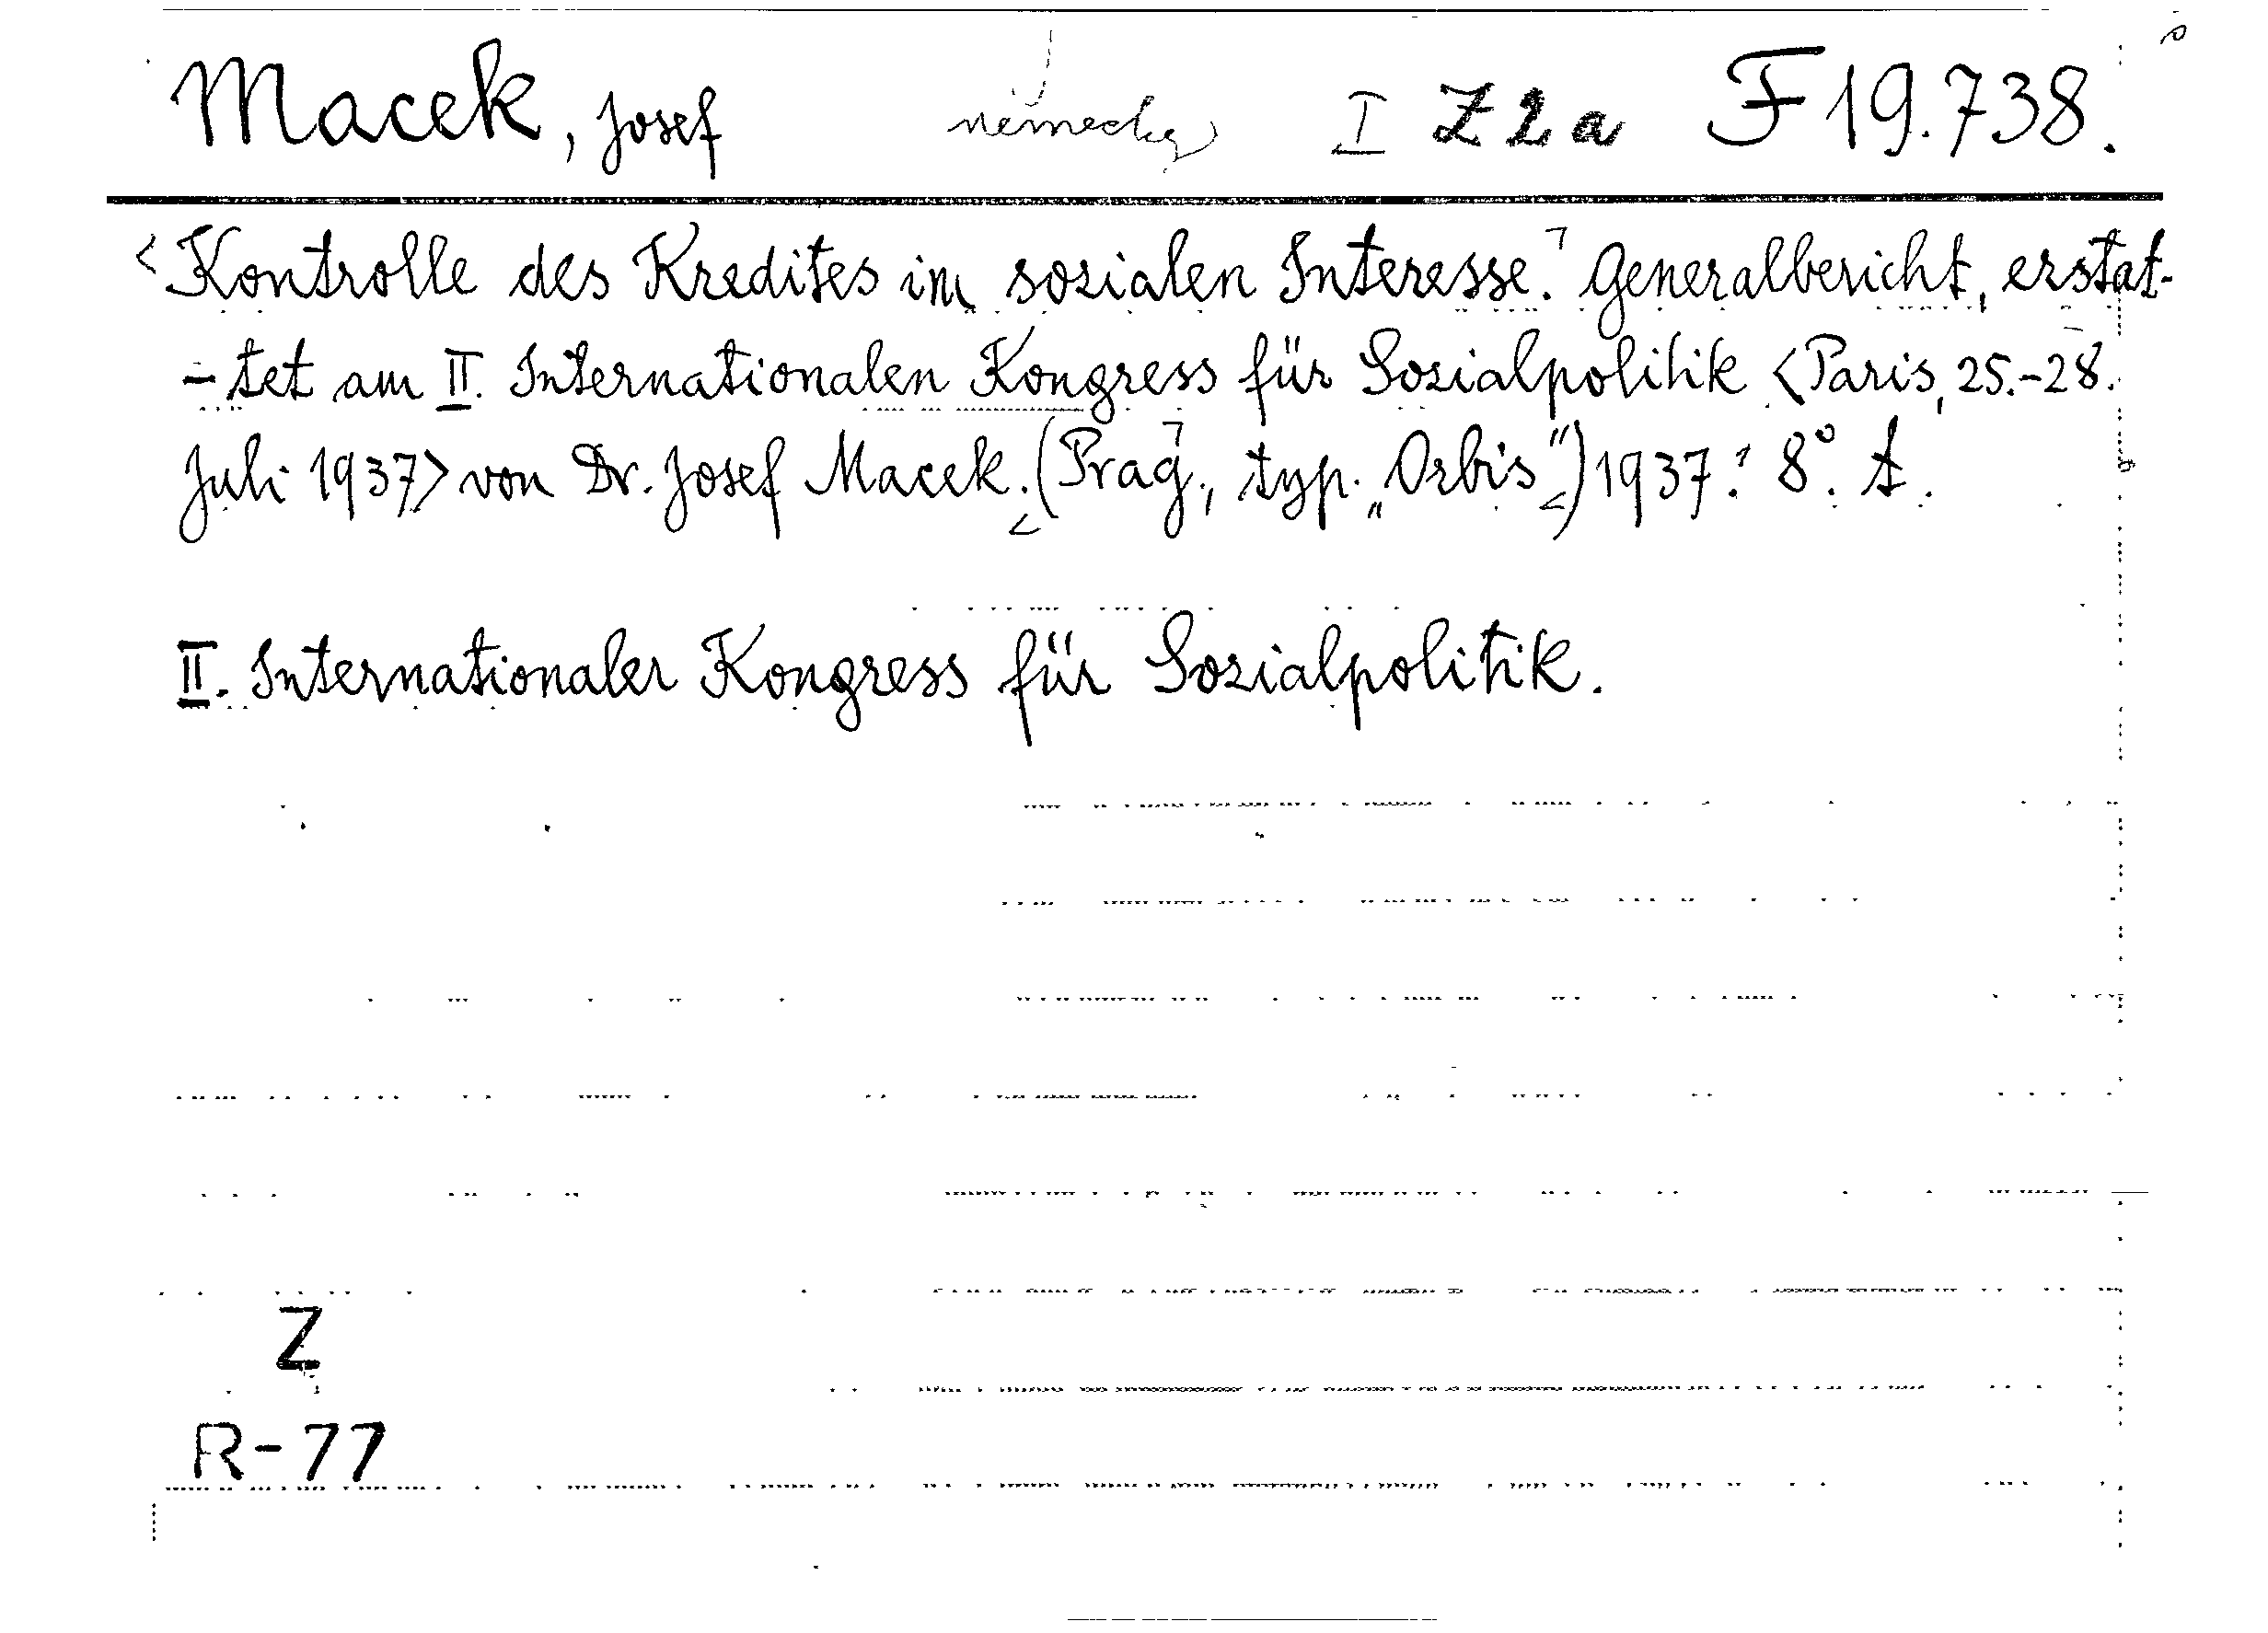 Macek, Josef německy I Z 2 a F 19.738.
<Kontrolle des Kredites im sozialen Interesse.⌝ Generalbericht, erstat-
-tet am II. Internationalen Kongress für Sozialpolitik <Paris, 25.-28.
Juli 1937> von Dr. Josef Macek. (Prag⌝, typ. „Orbis") 1937. 8°. A.
II. Internationaler Kongress für Sozialpolitik.
Z
R-77